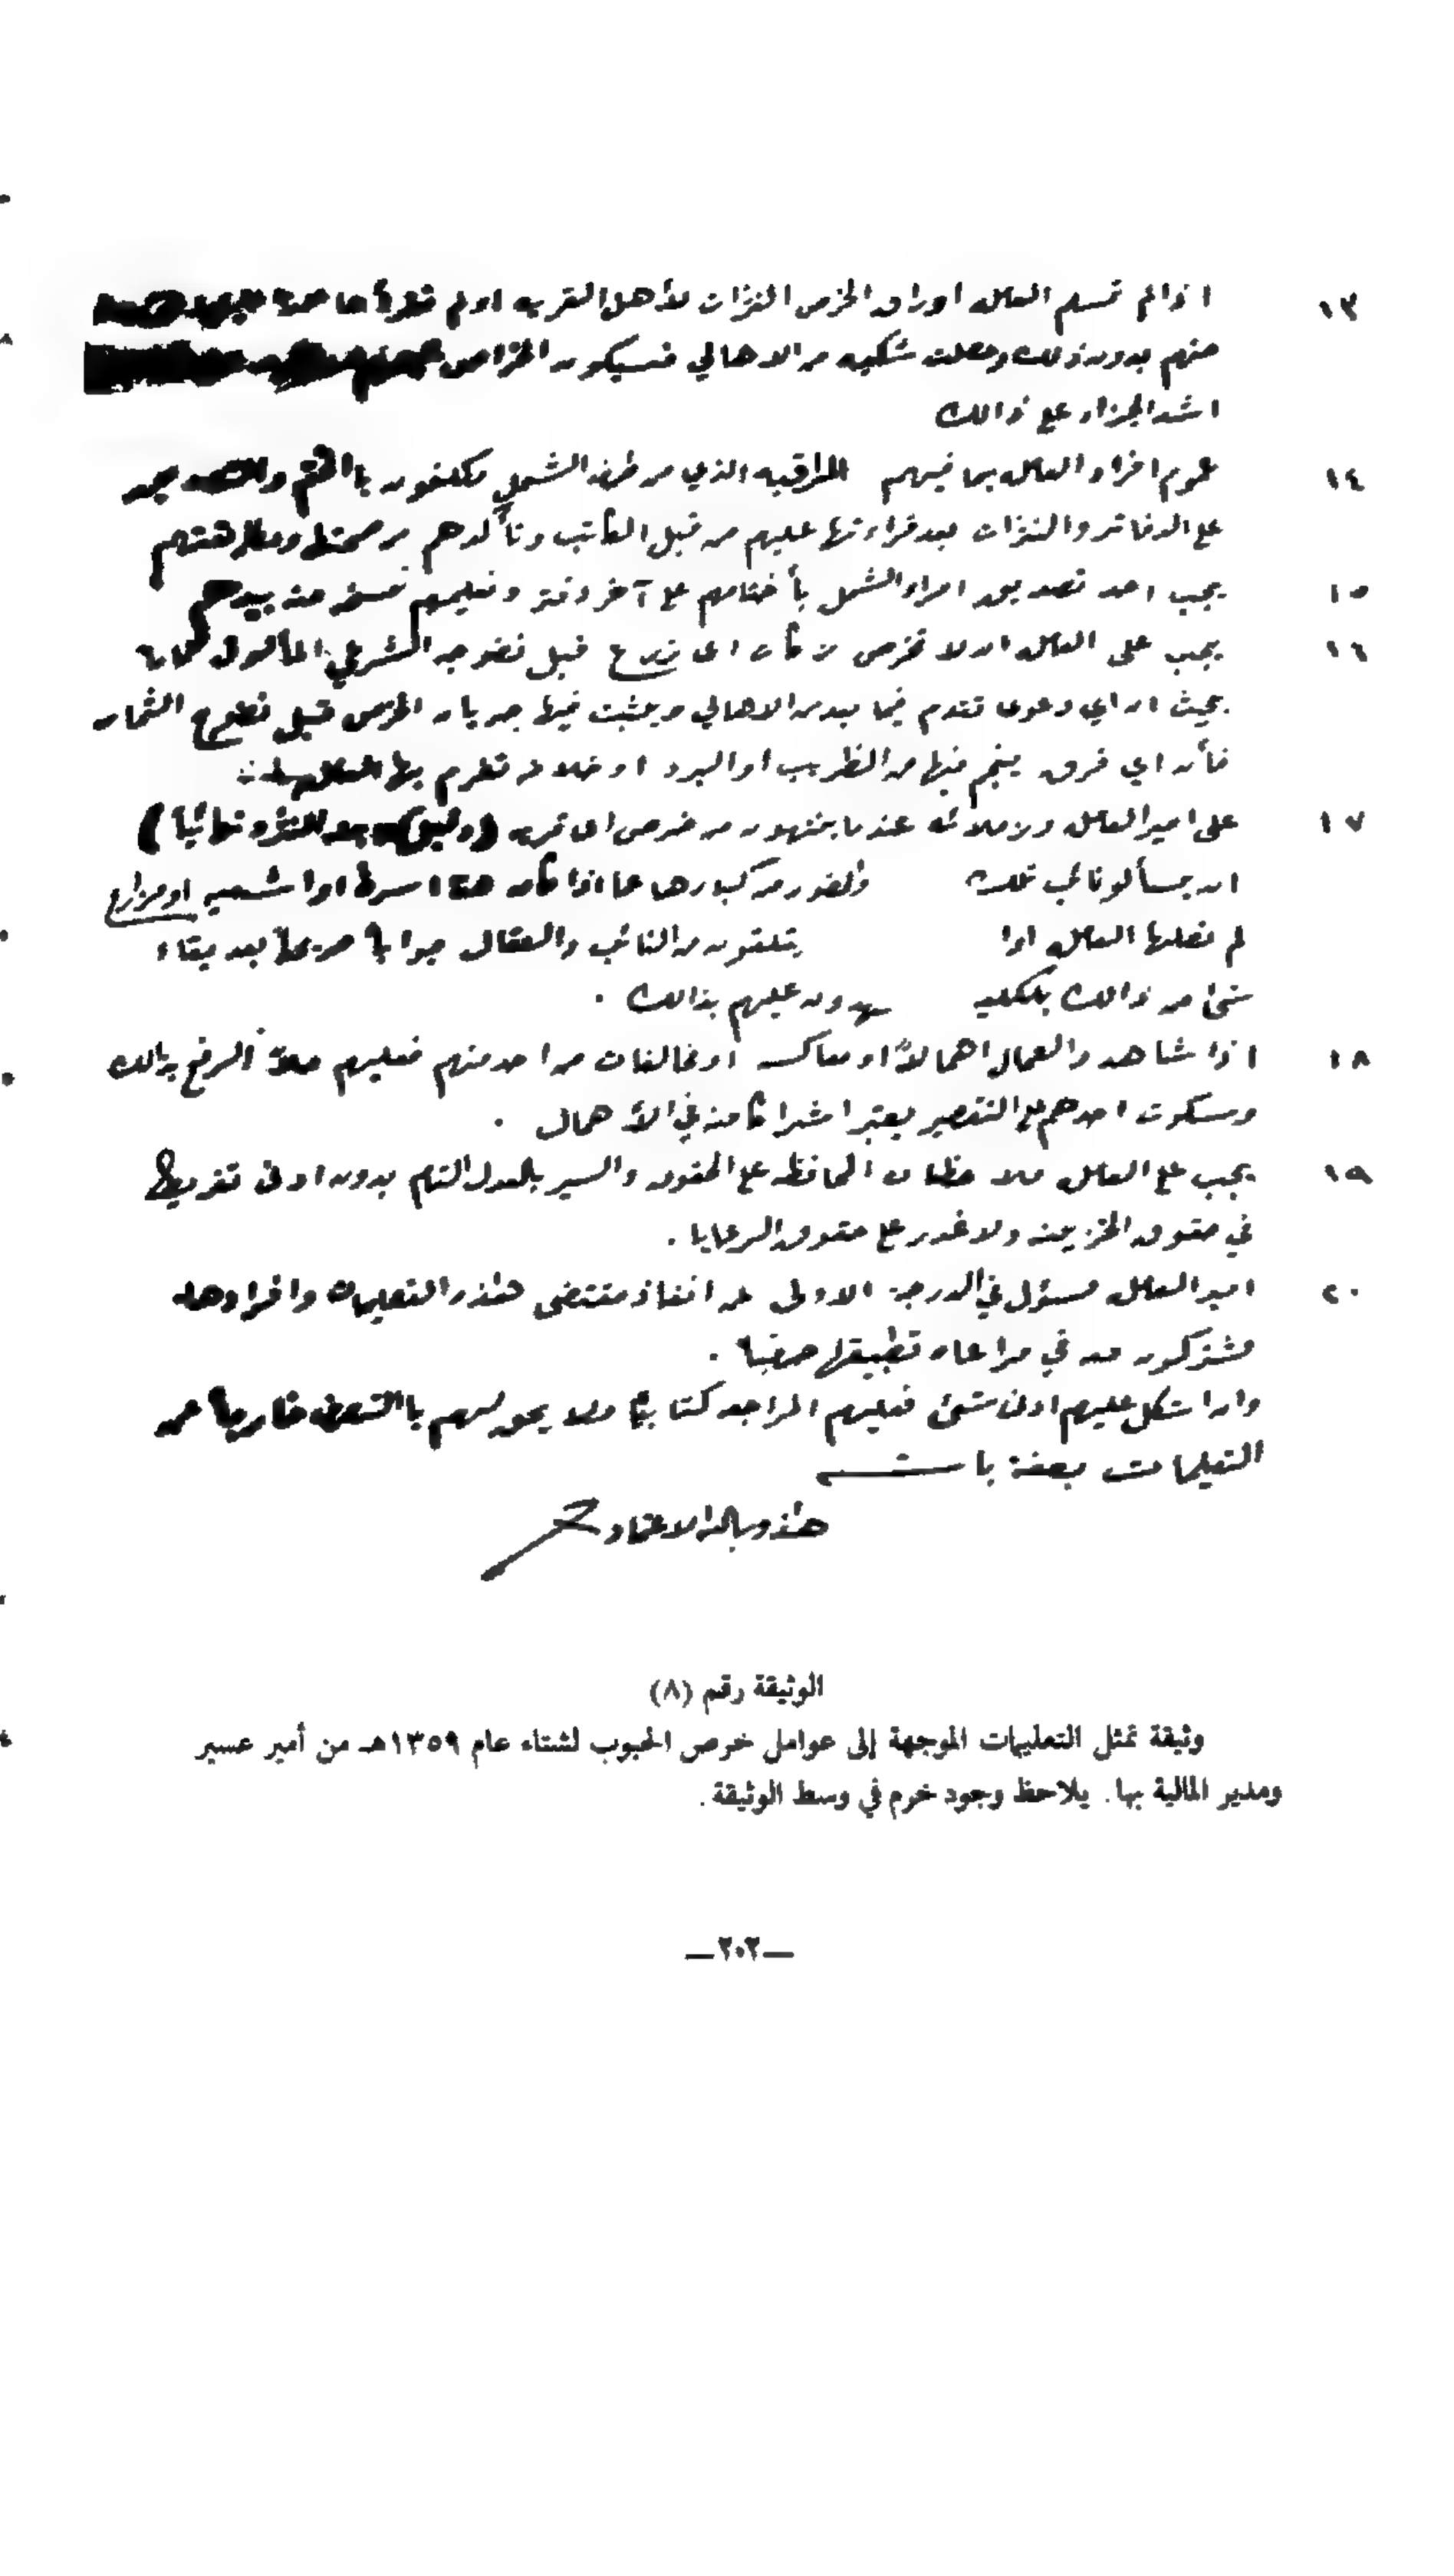 ١٣ اذا لم تسلم العامل اوراق الخرص النثرات لأهل القريه اولم
منهم بدون ذلك وحصلت شكيه من الاهالي فسيكون الخراص
اشد الجزاء على ذالك
١٤ عموم افراد العامل بما فيهم المراقبه الذي من طرف الشمل مكلفون باالختم والتصديق
على الدفاتر والنثرات بعد قراءتها عليهم من قبل الكاتب وتأكدهم من صحتها
١٥ يجب اخذ تصديق امراء الشمل بأختامهم على آخر دفتر وتسليمهم نسخه منه بيدهم
١٦ يجب على العامل ان لا تخرص زكات اى زرع قبل نضوجه الشرعي المألوف
بحيث ان اي دعوى تقدم فيما بعد من الاهالي ويثبت فيها جريان الخرص قبل نضوج الثمار
فأن اي فرق ينجم فيها من الضريب او البرد او خلافه تغرم بها
١٧ على امير العامل وزملائه عندما ينتهون من خرص اى قريه
ان يسألو نائب تلك والحضور من كبارها عما اذا كان هناك اسرة اوا شعيب او مزارع
لم تصلها العامل اوا يتلقون من النائب والعقال جوابا صريحا بعدم بقاء
شئ من ذالك بلكليه يشهدون عليهم بذالك .
١٨ اذا شاهد العمال اهمالاً او معاكسه او مخالفات من احد منهم فعليهم الرفع بذالك
وسكوت احدهم على التقصير يعتبر اشتراكا منه في الأهمال .
١٩ يجب على العامل ملاحظات المحافظه على الحقوق والسير بالعدل التام بدون ادنى تفريط
في حقوق الخزينه ولا غدر على حقوق الرعايا .
٢٠ امير العامل مسؤل في الدرجة الاولى عن انفاذ مقتضى هذه التعليمات وافراد
مشتركون معه في مراعاة تطبيقها حرفيا .
وان اشكل عليهم ادنى شئ فعليهم المراجعه كتابيا ولا يجوز لهم باالتصرف خارجاً عن
التعليمات بصفة باته
هذه وبالله الاعتماد
الوثيقة رقم (٨)
وثيقة تمثل التعليمات الموجهة إلى عوامل خرص الحبوب لشتاء عام ١٣٥٩هـ من أمير عسير
ومدير المالية بها. يلاحظ وجود خرم في وسط الوثيقة.
—٢٠٢—